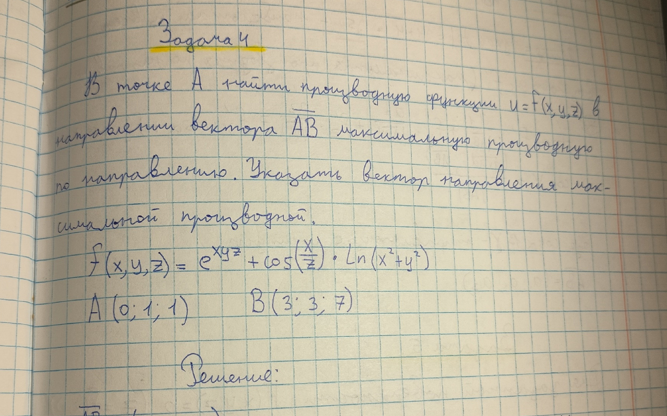 Задача 4
В точке A найти производную функции u=f(x,y,z) в
направлении вектора \overline{AB} максимальную производную
по направлению. Указать вектор направления мак-
симальной производной.
f(x,y,z) = e^{xyz} + cos(\frac{x}{z}) · Ln(x²+y²)
A(0; 1; 1) B(3; 3; 7)
Решение: